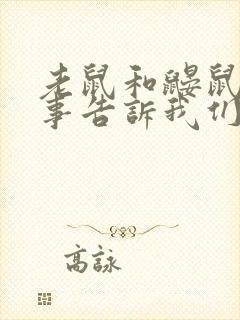 老鼠和鼹鼠
事告訴我们
高詠